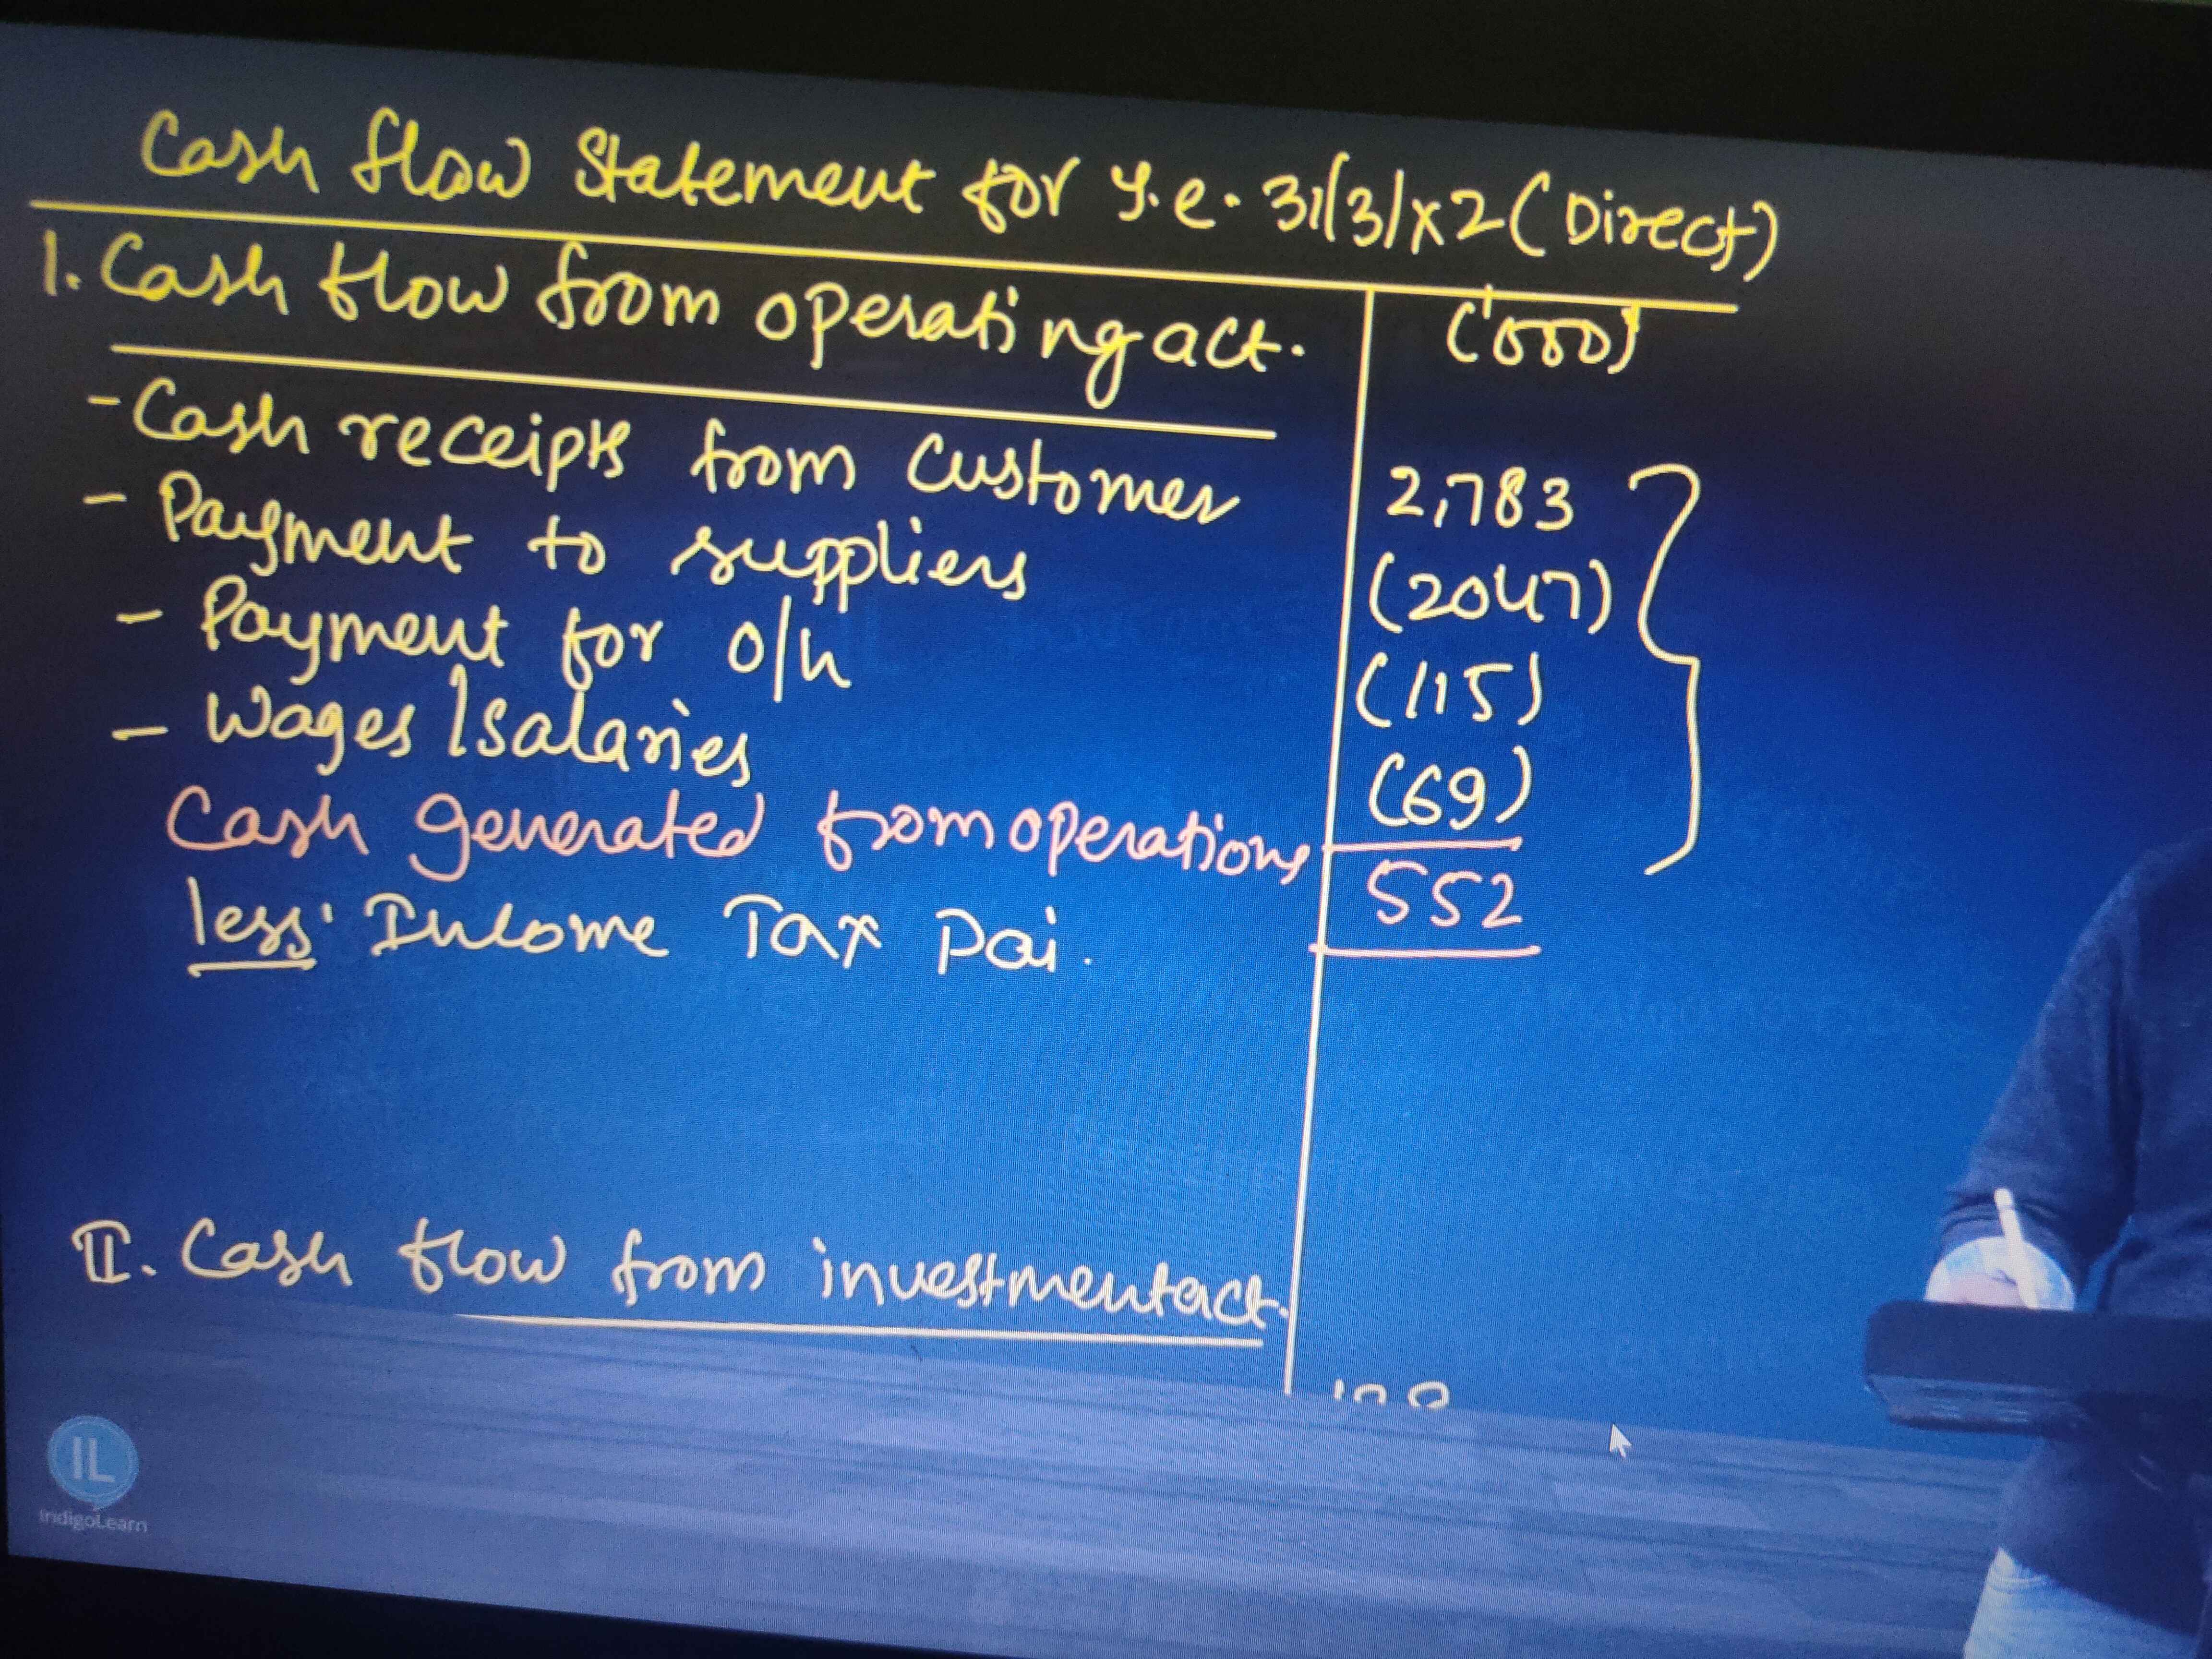 Cash flow Statement for Y.e. 31/3/x2 (Direct)
1. Cash flow from operating act. ('000)
- Cash receipts from customer 2,783
- Payment to suppliers (2047)
- Payment for o/h (115)
- Wages/salaries (69)
Cash generated from operations 552
less: Income Tax Pai.
II. Cash flow from investment act.
IL
IndigoLearn